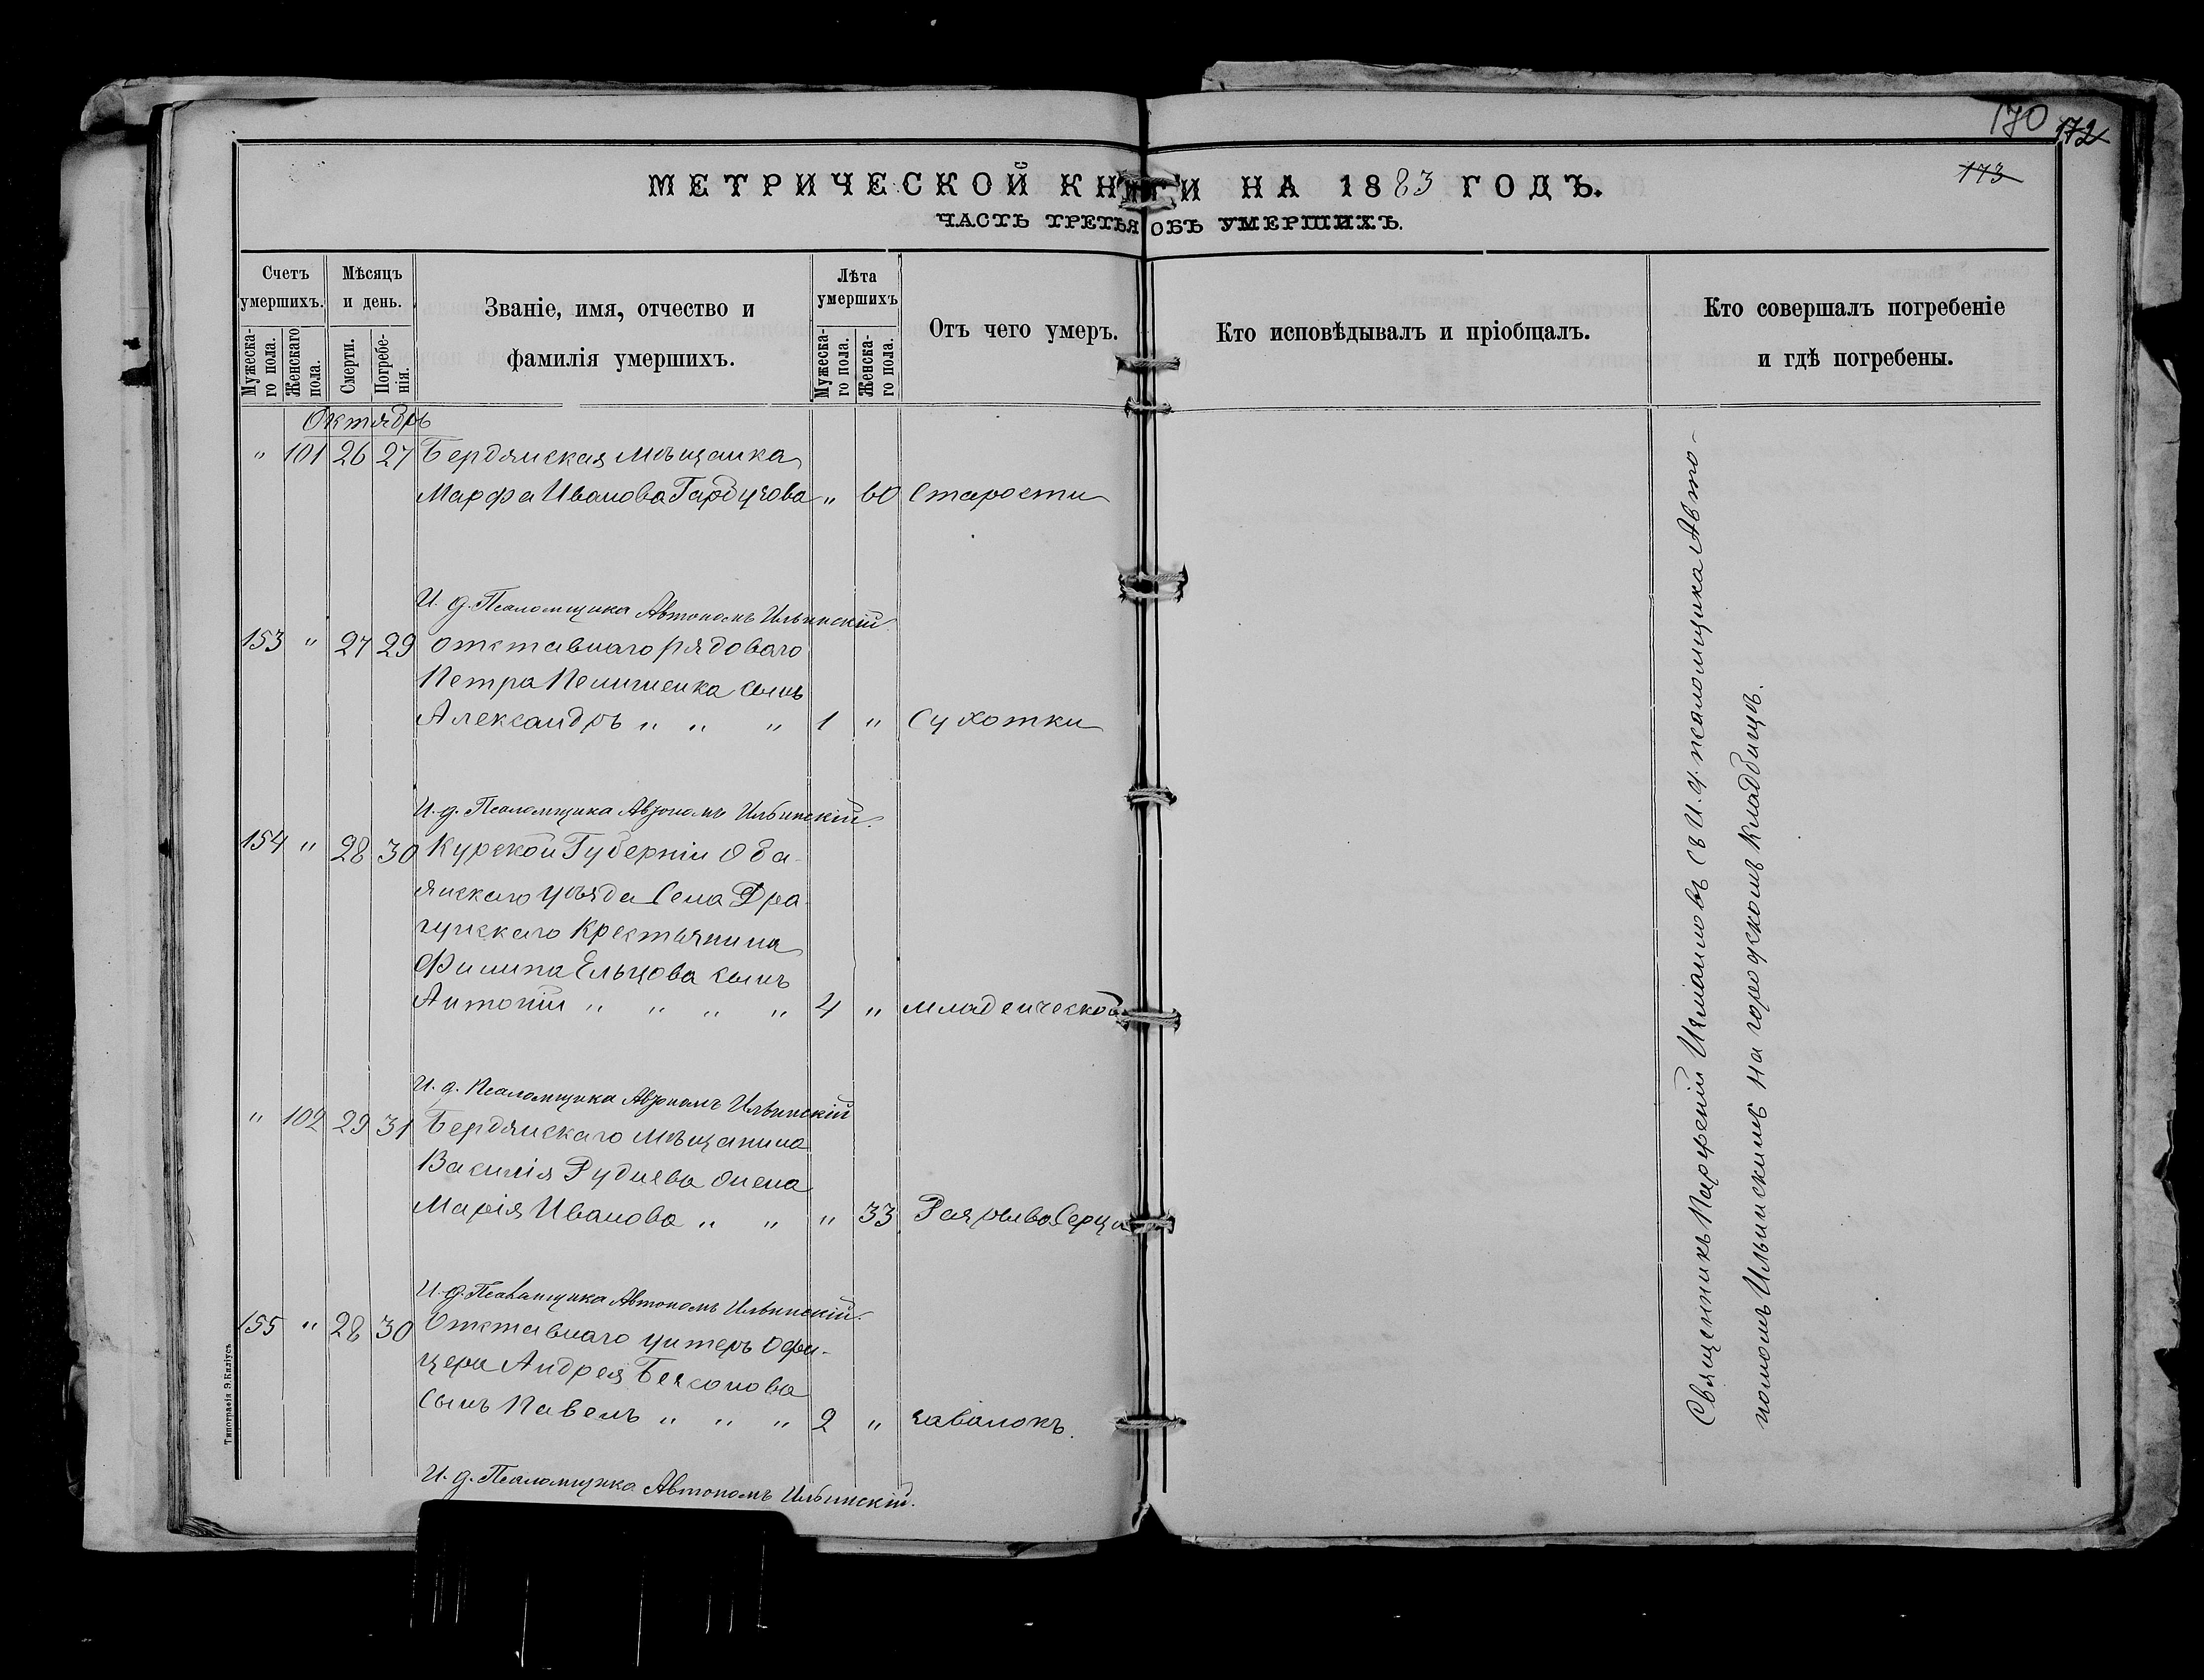 170
172
173
МЕТРИЧЕСКОЙ КНИГИ НА 1883 ГОДЪ.
ЧАСТЬ ТРЕТЬЯ ОБЪ УМЕРШИХЪ.
Счетъ умершихъ.
Мѣсяцъ и день.
Званіе, имя, отчество и фамилія умершихъ.
Лѣта умершихъ
Отъ чего умеръ.
Кто исповѣдывалъ и пріобщалъ.
Кто совершалъ погребеніе и гдѣ погребены.
Мужескаго пола.
Женскаго пола.
Смерти.
Погребенія.
Мужескаго пола.
Женскаго пола.
Октябрь
" 101 26 27 Бердянская мѣщанка
Марфа Иванова " 60 Старости
И. д. Псаломщика Автономъ Ильинскій
153 " 27 29 Отставнаго рядоваго
Петра сынъ
Александръ " " " 1 " Сухотки
И. д. Псаломщика Автономъ Ильинскій.
154 " 28 30 Курской Губерніи Обо-
янскаго уѣзда Села Дра-
гунскаго Крестьянина
Филипа Ельцова сынъ
Антоній " " " " 4 " младенческой
И. д. Псаломщика Автономъ Ильинскій
" 102 29 31 Бердянскаго мѣщанина
Василія Руднева жена
Марія Иванова " " " 33 Разрыва Серца
И. д. Псаломщика Автономъ Ильинскій.
155 " 28 30 Отставнаго унтеръ Офи-
цера Андрея
Сынъ Павелъ " " " 2 " завалокъ.
И. д. Псаломщика Автономъ Ильинскій.
Священникъ Парфеній Измаиловъ съ И. д. псаломщика Авто-
номомъ Ильинскимъ на городскомъ кладбищѣ.
Типографія Э. Киліусъ